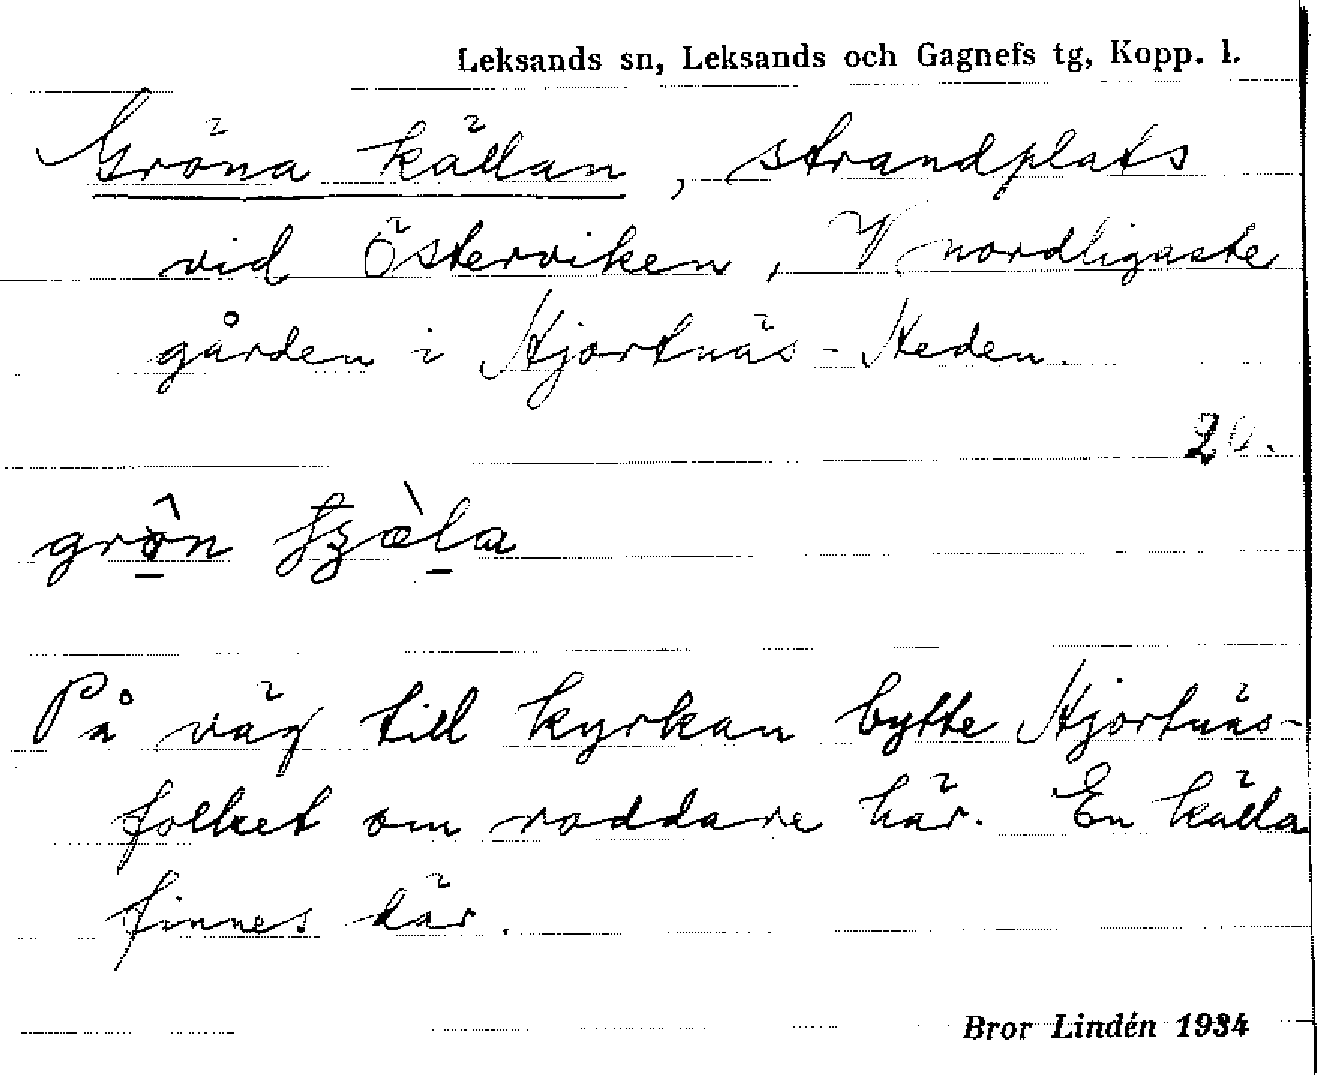 Leksands sn, Leksands och Gagnefs tg, Kopp. l.
Gröna källan, strandplats
vid Österviken, V nordligaste
gården i Hjortnäs-Heden.
20.
grôn
På väg till kyrkan bytte Hjortnäs-
folket om roddare här. En källa
finnes där.
Bror Lindén 1934